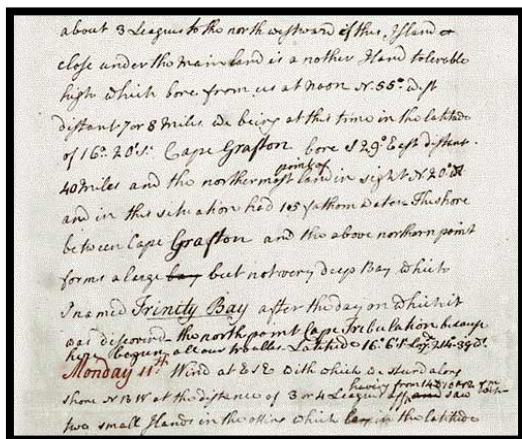 about 3 Leagues to the northwestward of this Island &
close under the main land is a nother Island tolerable
high which bore from us at noon N. 55° West
distant 7 or 8 Miles we being at this time in the latitude
of 16°. 20' S. Cape Grafton bore S 29° East distant
40 Miles and the northermost point of land in sight N. 20° W
and in this situation had 10 fathom water The shore
between Cape Grafton and the above northern point
forms a large bay but not very deep Bay which
I named Trinity Bay after the day on which it
was discovered the north point Cape Tribulation because
here begun all our troubles. Latitude 16° 6' S. Longd 214° 39' W.
Monday 11th Wind at ESE with which we steer'd along
shore NBW at the distance of 3 or 4 Leagues off having from 14 to 10 & 12 fm saw
two small Islands in the offing which lay in the latitude